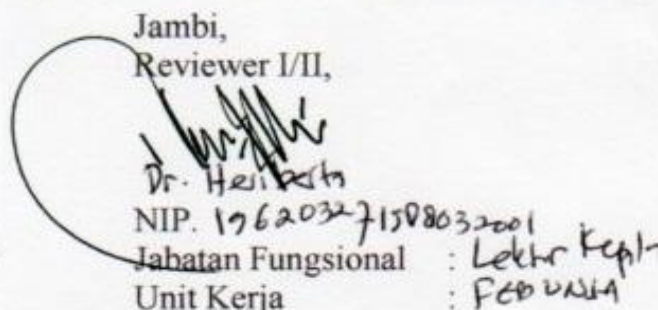 Jambi,
Reviewer I/II,
Dr. Heriberta
NIP. 196203271988032001
Jabatan Fungsional : Lektor Kepl
Unit Kerja : FEB UNJA